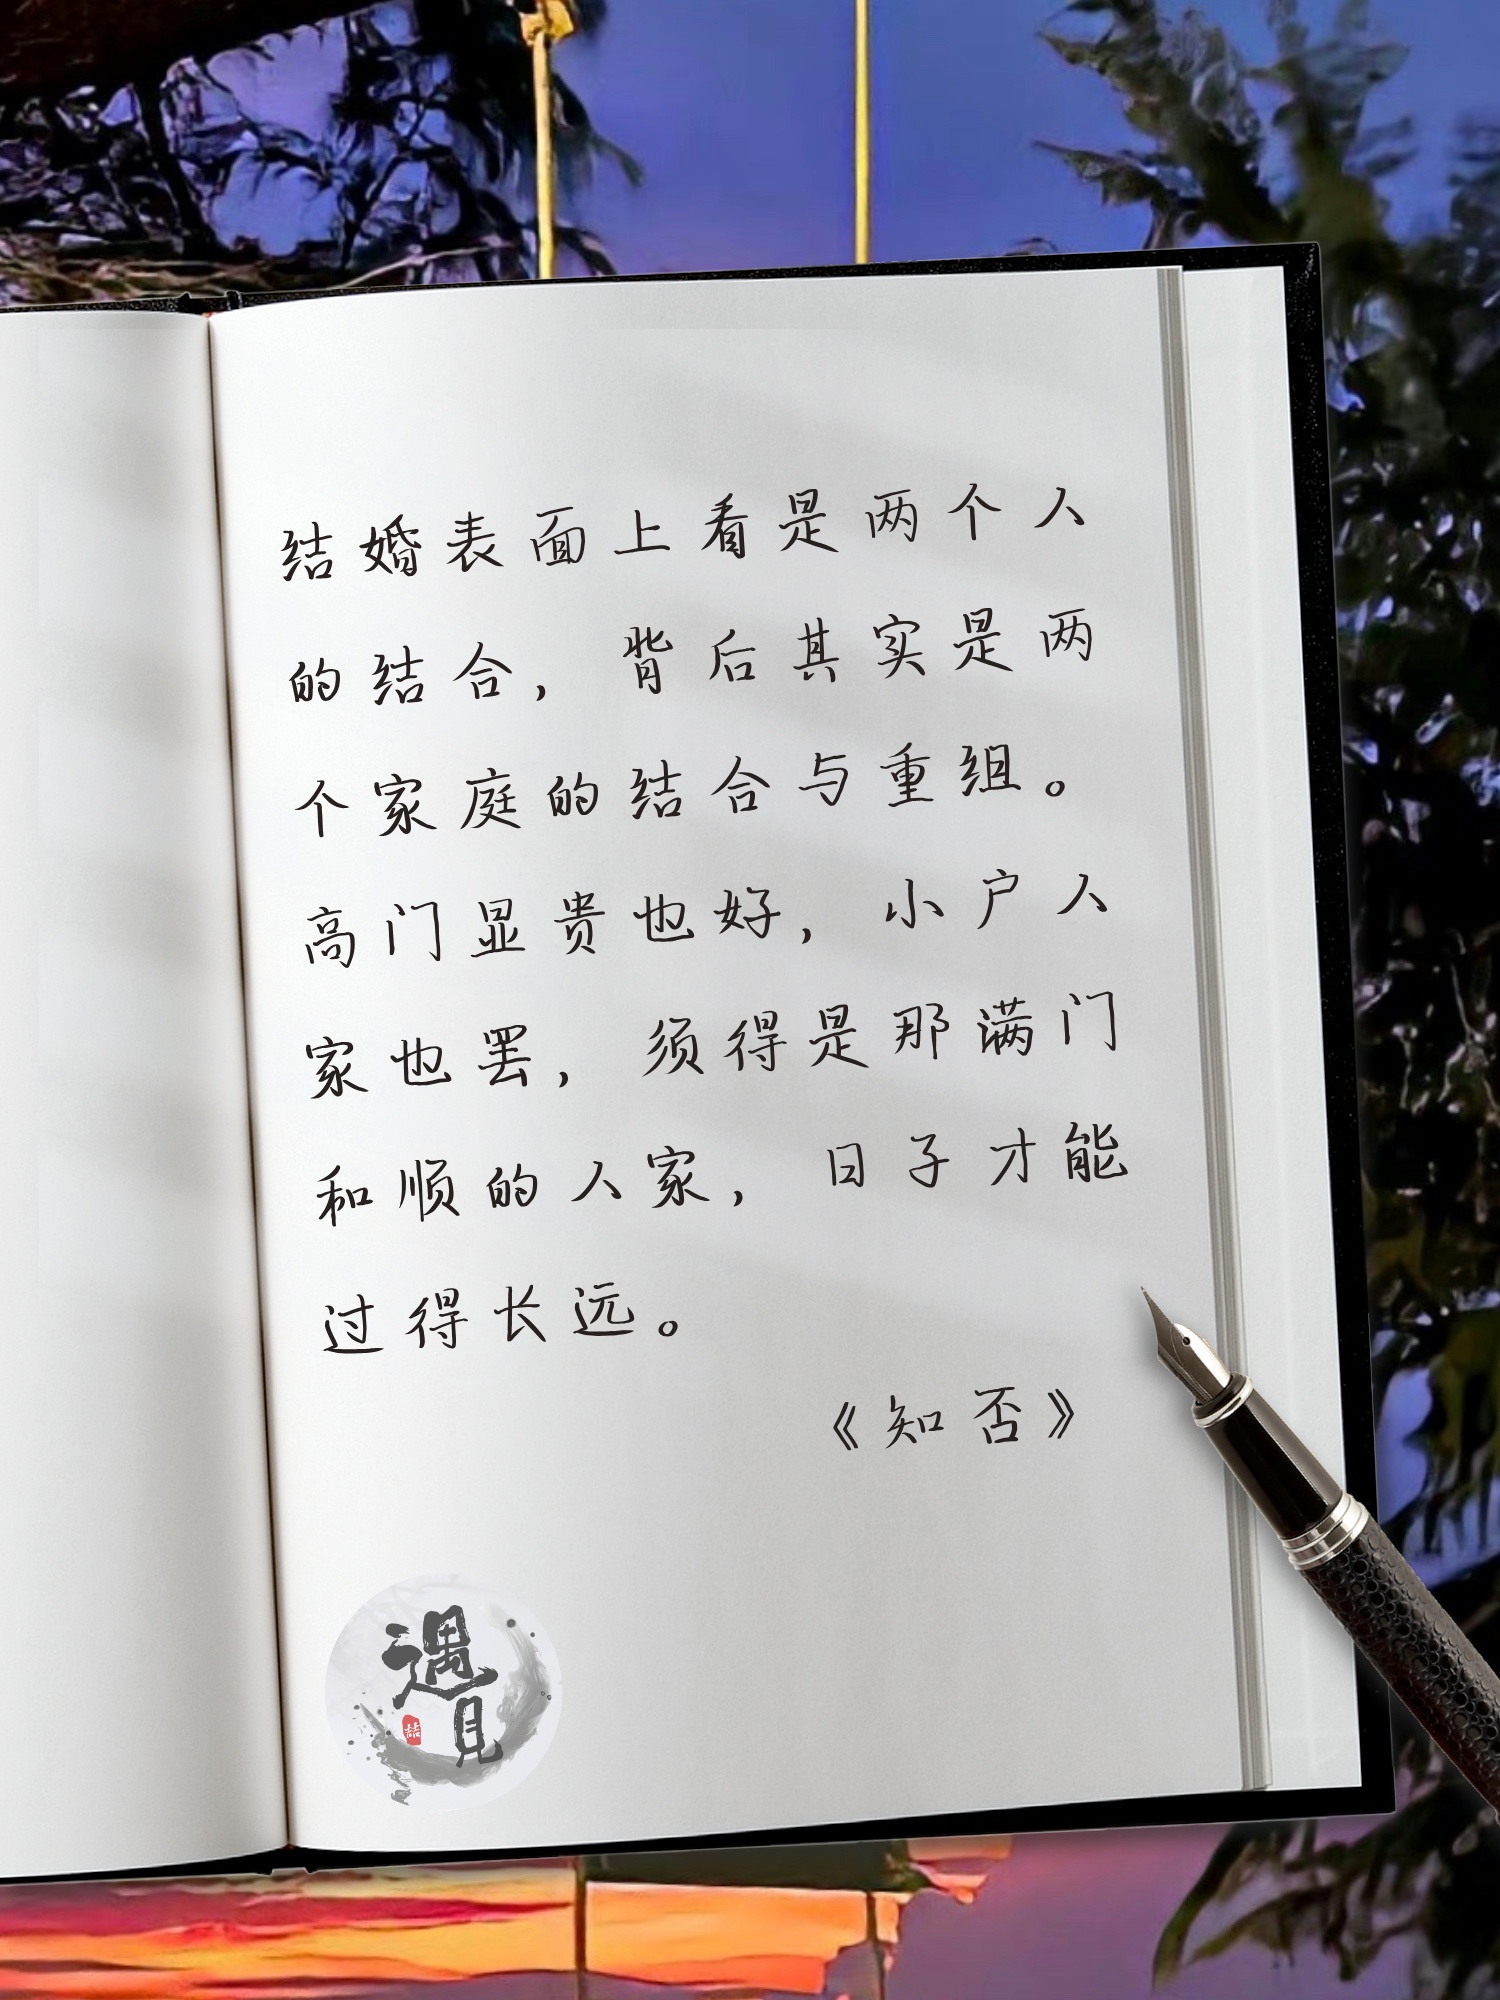 结婚表面上看是两个人
的结合，背后其实是两
个家庭的结合与重组。
高门显贵也好，小户人
家也罢，须得是那满门
和顺的人家，日子才能
过得长远。
《知否》
遇
见
喆